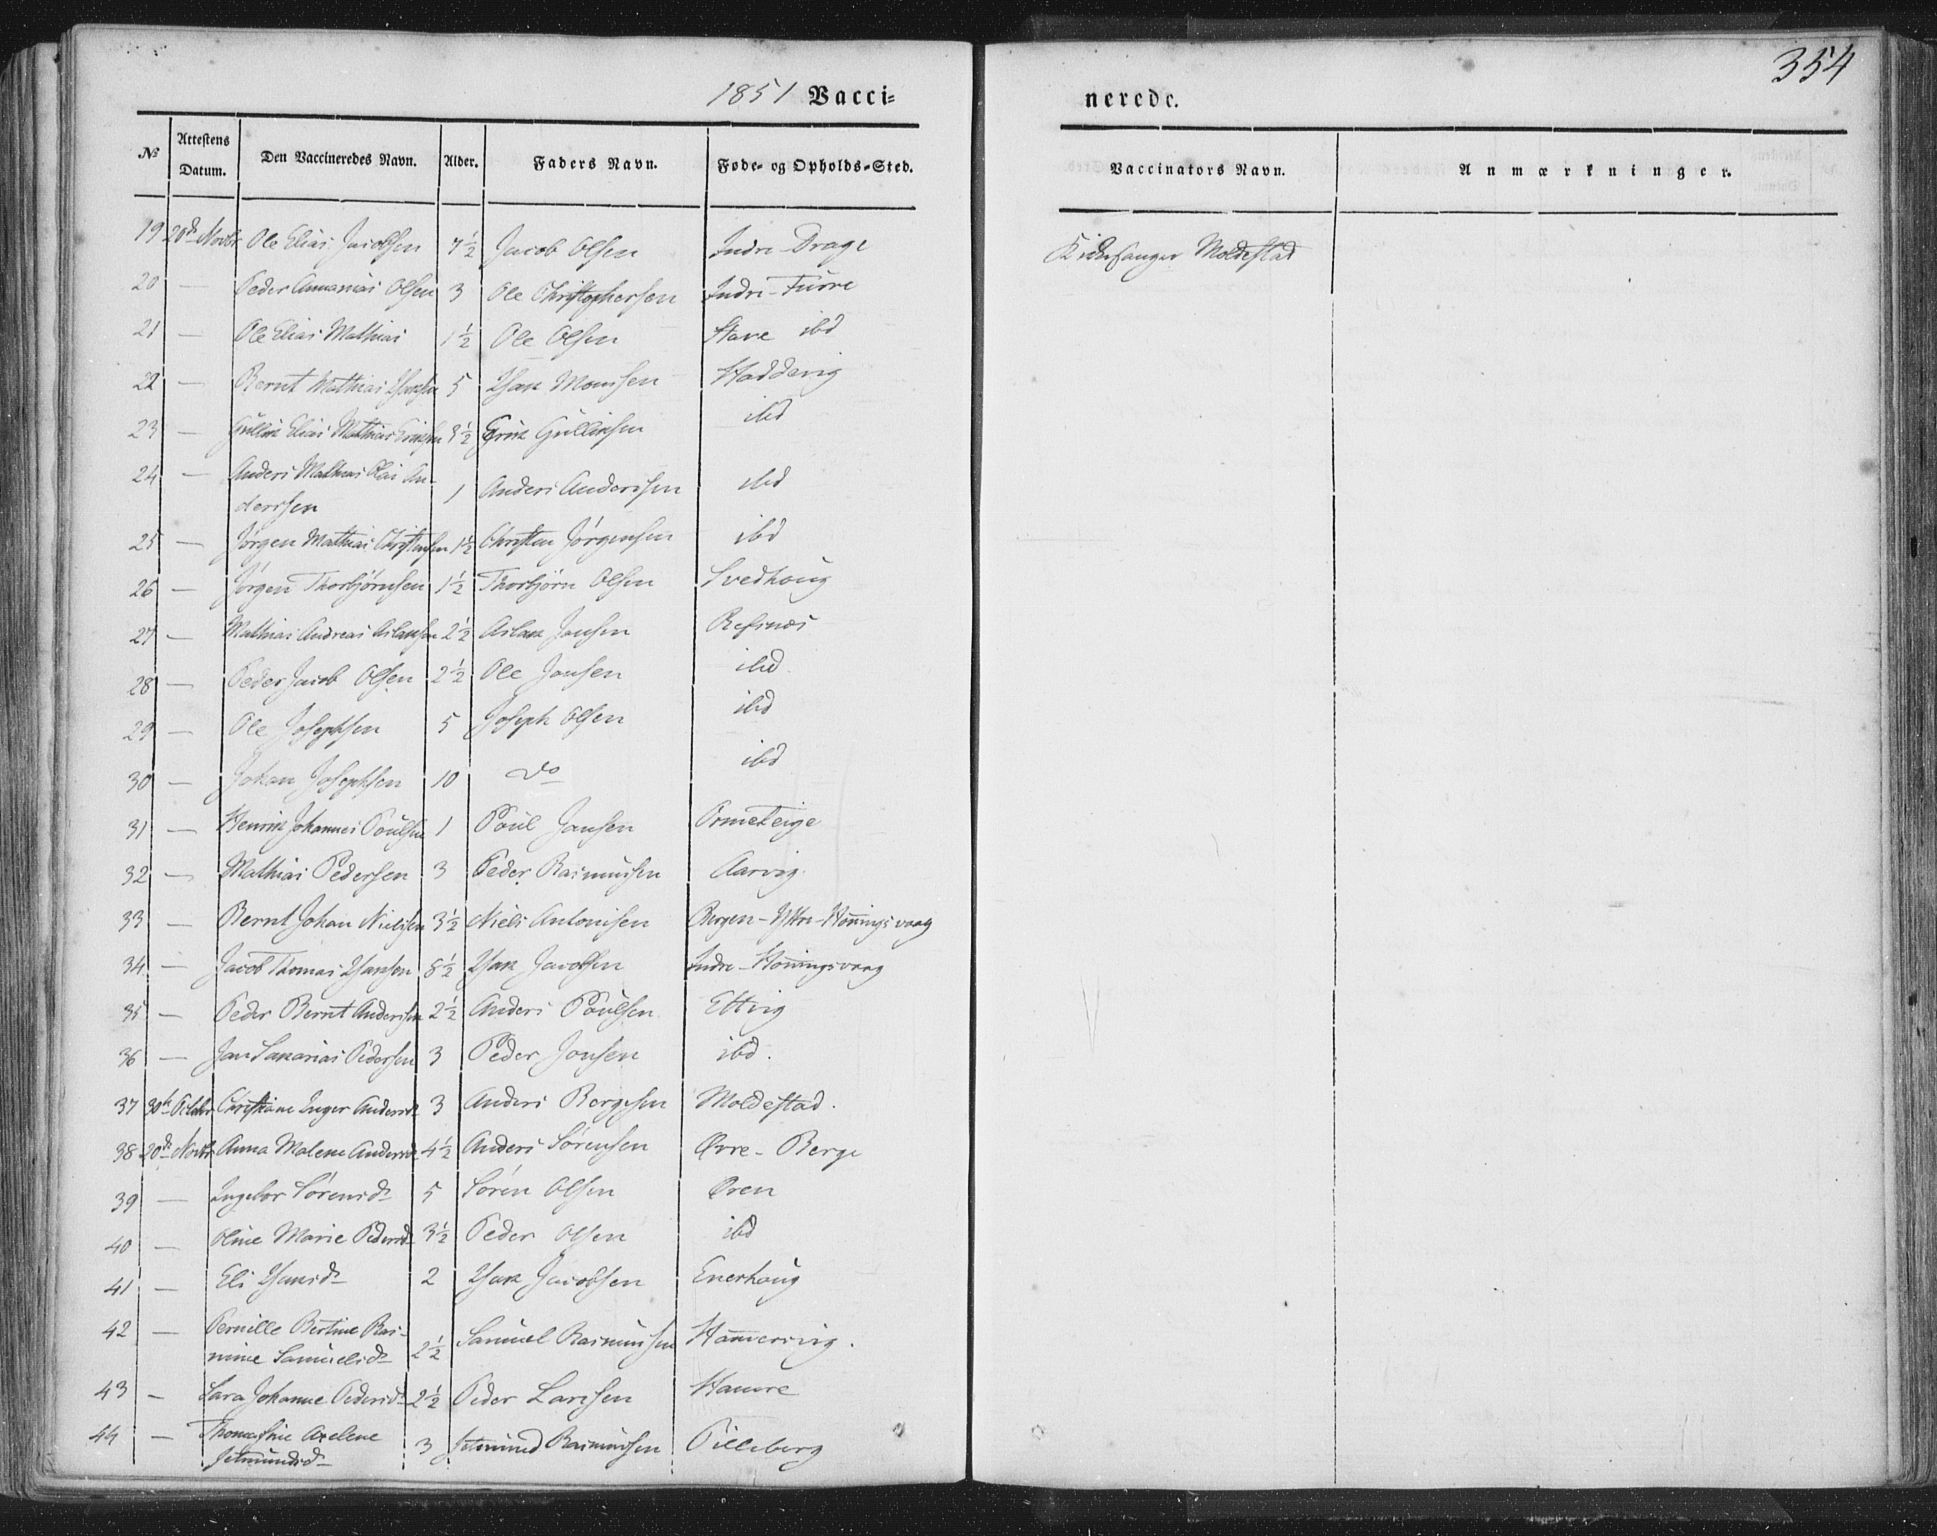 354
1851 Vacci=
nerede.
№ Attestens Datum. Den Vaccineredes Navn. Alder. Faders Navn. Føde- og Opholds-Sted. Vaccinators Navn. Anmærkninger.
19 20de Novbr Ole Elias Jacobsen 7½ Jacob Olsen Indre Drage Kirkesanger Moldestad
20 — Peder Annanias Olsen 3 Ole Christophersen Indre-Furre
21 — Ole Elias Mathias 1½ Ole Olsen Stave ibd
22 — Bernt Mathias Hansen 5 Hans Monsen Haddevig
23 — Gullik Elias Mathias Eriksen 3½ Erik Gulliksen ibd
24 — Anders Mathias Elias An-
derssen 1 Anders Anderssen ibd
25 — Jørgen Mathias Christensen 1½ Christen Jørgensen ibd
26 — Jørgen Thorbjørnsen 1½ Thorbjørn Olsen Svedhoug
27 — Mathias Andreas Aslaksen 2½ Aslak Jonsen Refsnæs
28 — Peder Jacob Olsen 2½ Ole Jonsen ibd.
29 — Ole Josephsen 5 Joseph Olsen ibd
30 — Johan Josephsen 10 do ibd
31 — Henrik Johannes Poulsen 1 Poul Jansen Ormeteige
32 — Mathias Pedersen 3 Peder Rasmussen Aarvig
33 — Bernt Johan Nielsen 3½ Niels Antonisen Bergen-Yttre-Honningsvaag
34 — Jacob Thomas Hansen 8½ Hans Jacobsen Indre-Honningsvaag
35 — Peder Bernt Anderssen 2½ Anders Poulsen Ettvig
36 — Jan Sakarias Pedersen 3 Peder Jonsen ibd.
37 30te Octobr Christiane Inger Andersdr 3 Anders Borgesen Moldestad.
38 20de Novbr Anna Malene Andersdr 4½ Anders Sørensen Øvre-Berge
39 — Ingebor Sørensdr 5 Søren Olsen Øren
40 — Oline Marie Pedersdr 3½ Peder Olsen ibd
41 — Eli Hansdr 2 Hans Jacobsen Enerhoug
42 — Pernille Bertine Ras-
mine Samuelsdr 2½ Samuel Rasmussen Hammervig.
43 — Sara Johanne Pedersdr 2½ Peder Larssen Hamre
44 — Thomasine Axelene
Jetmundsdr 3 Jetmund Rasmussen Pilleberg